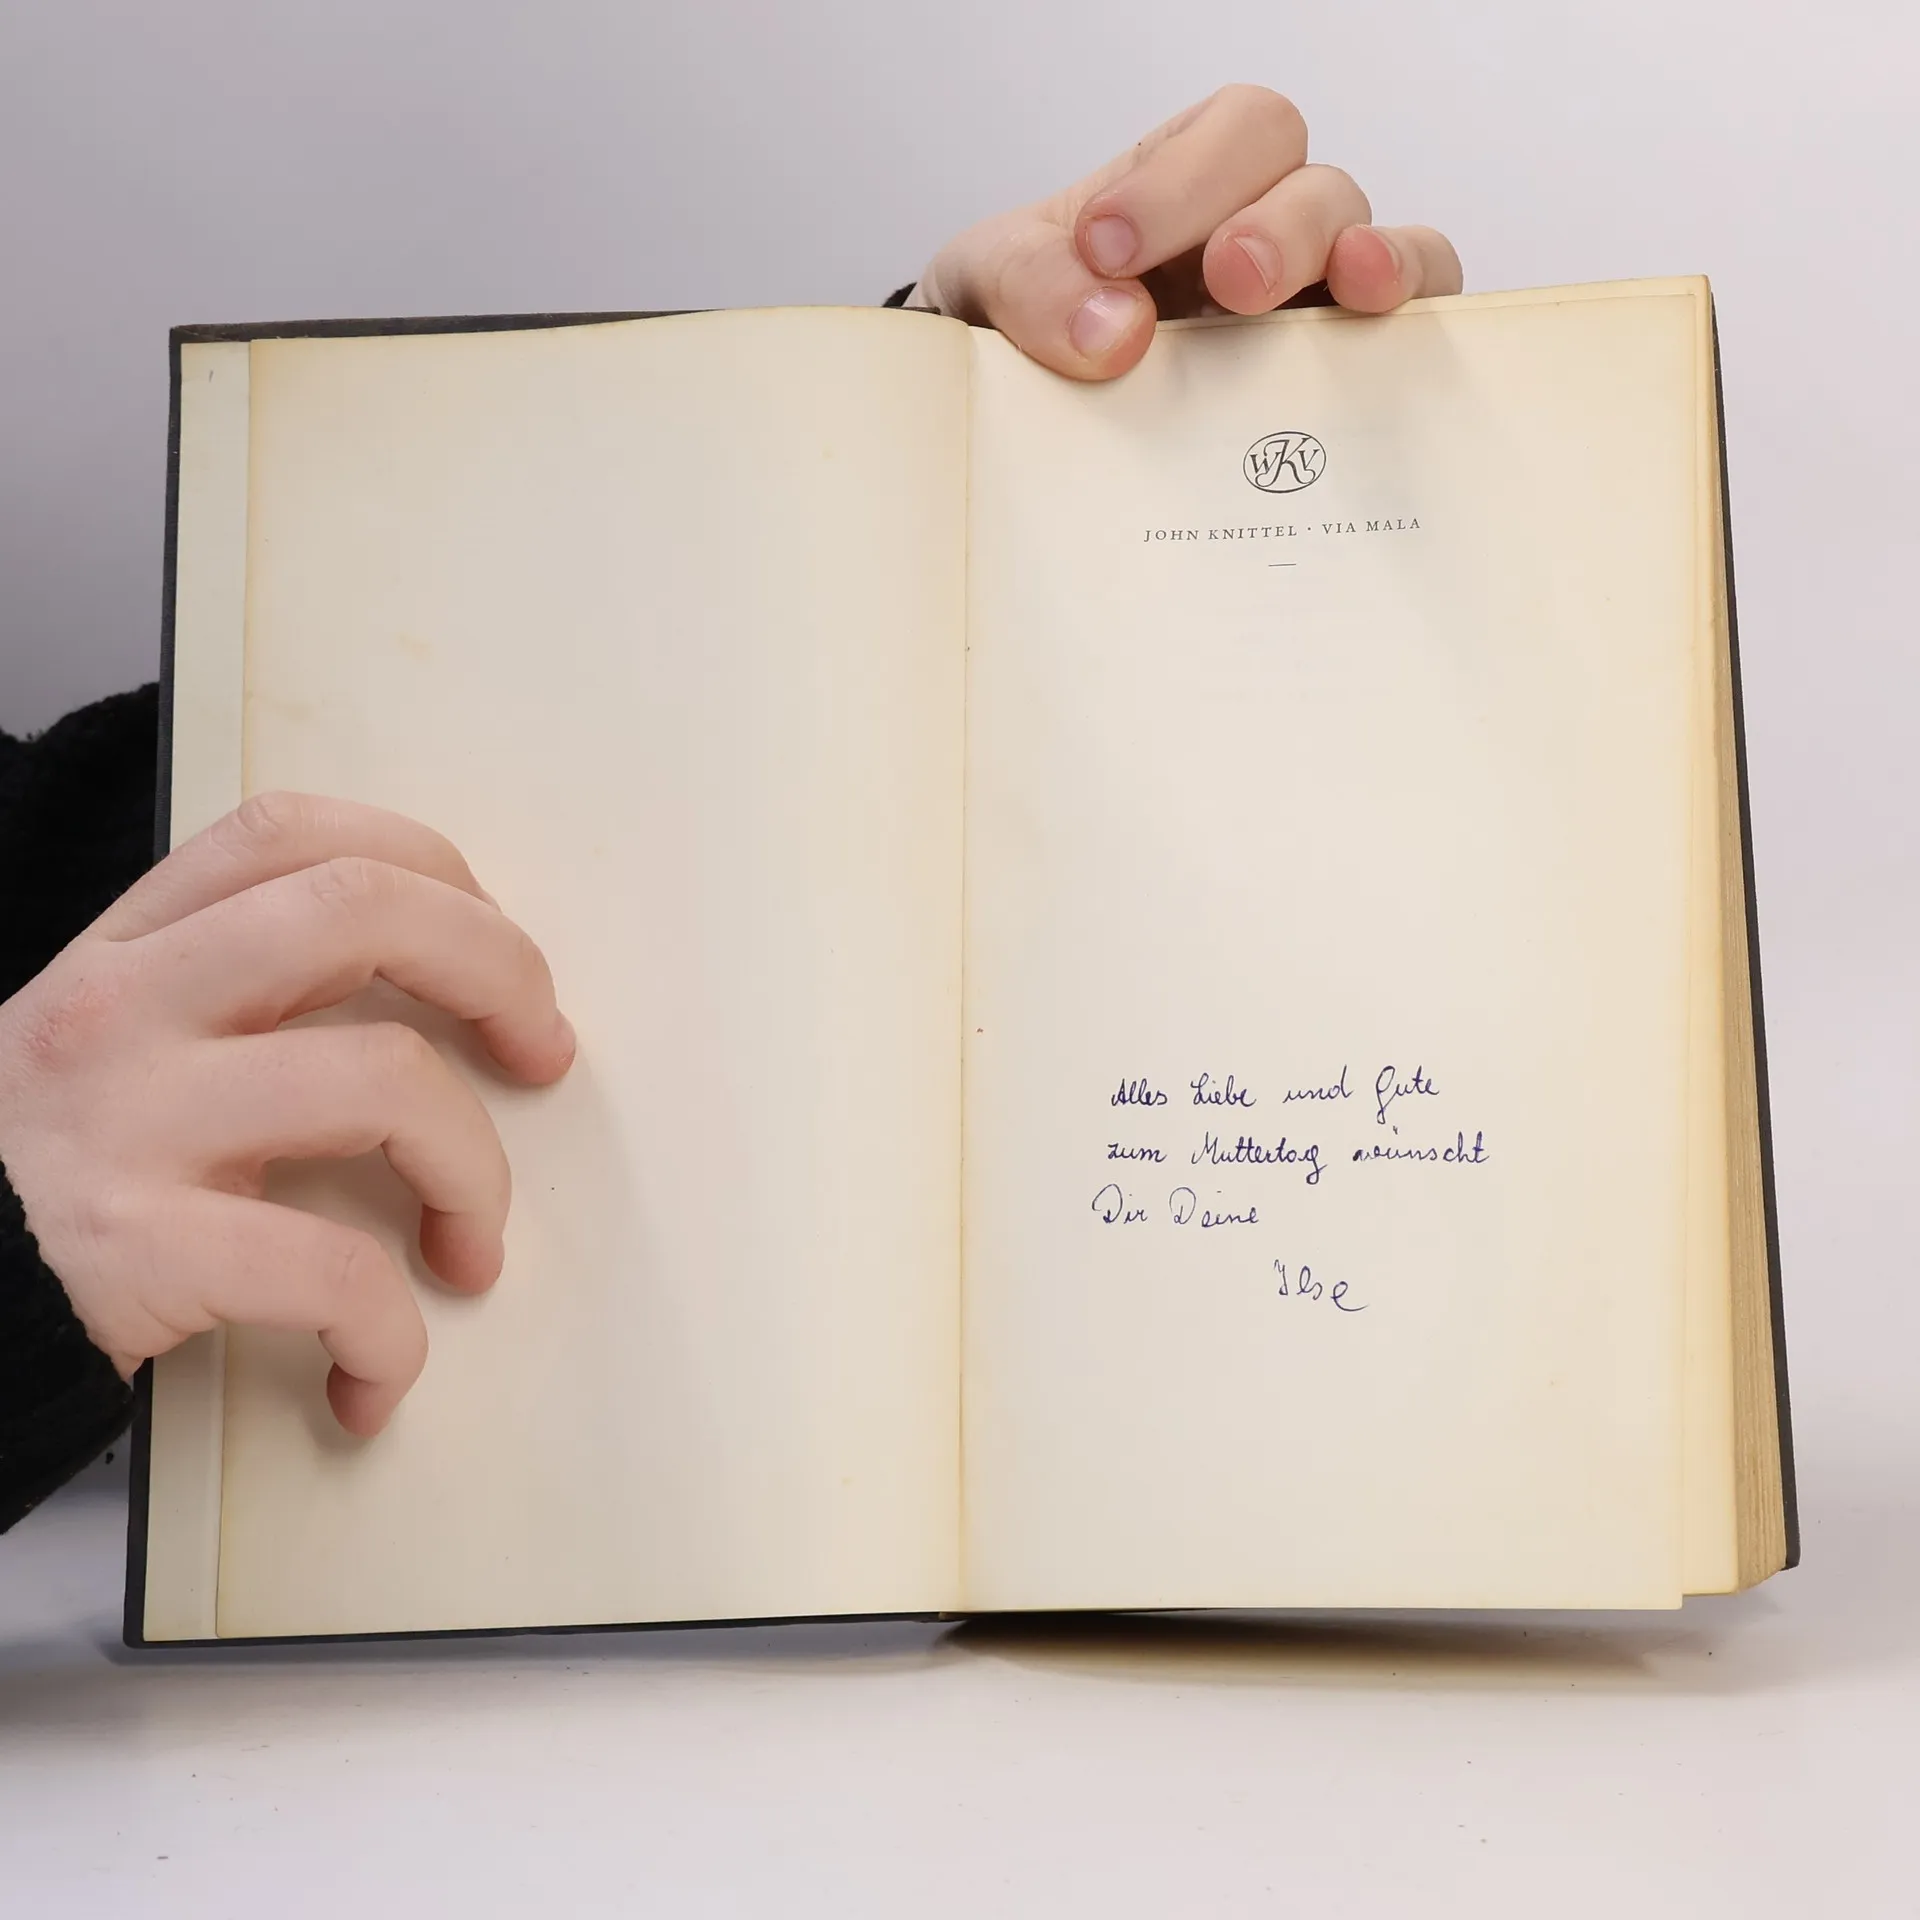 WKV
JOHN KNITTEL · VIA MALA
Alles Liebe und Gute
zum Muttertag wünscht
Dir Deine
Ilse